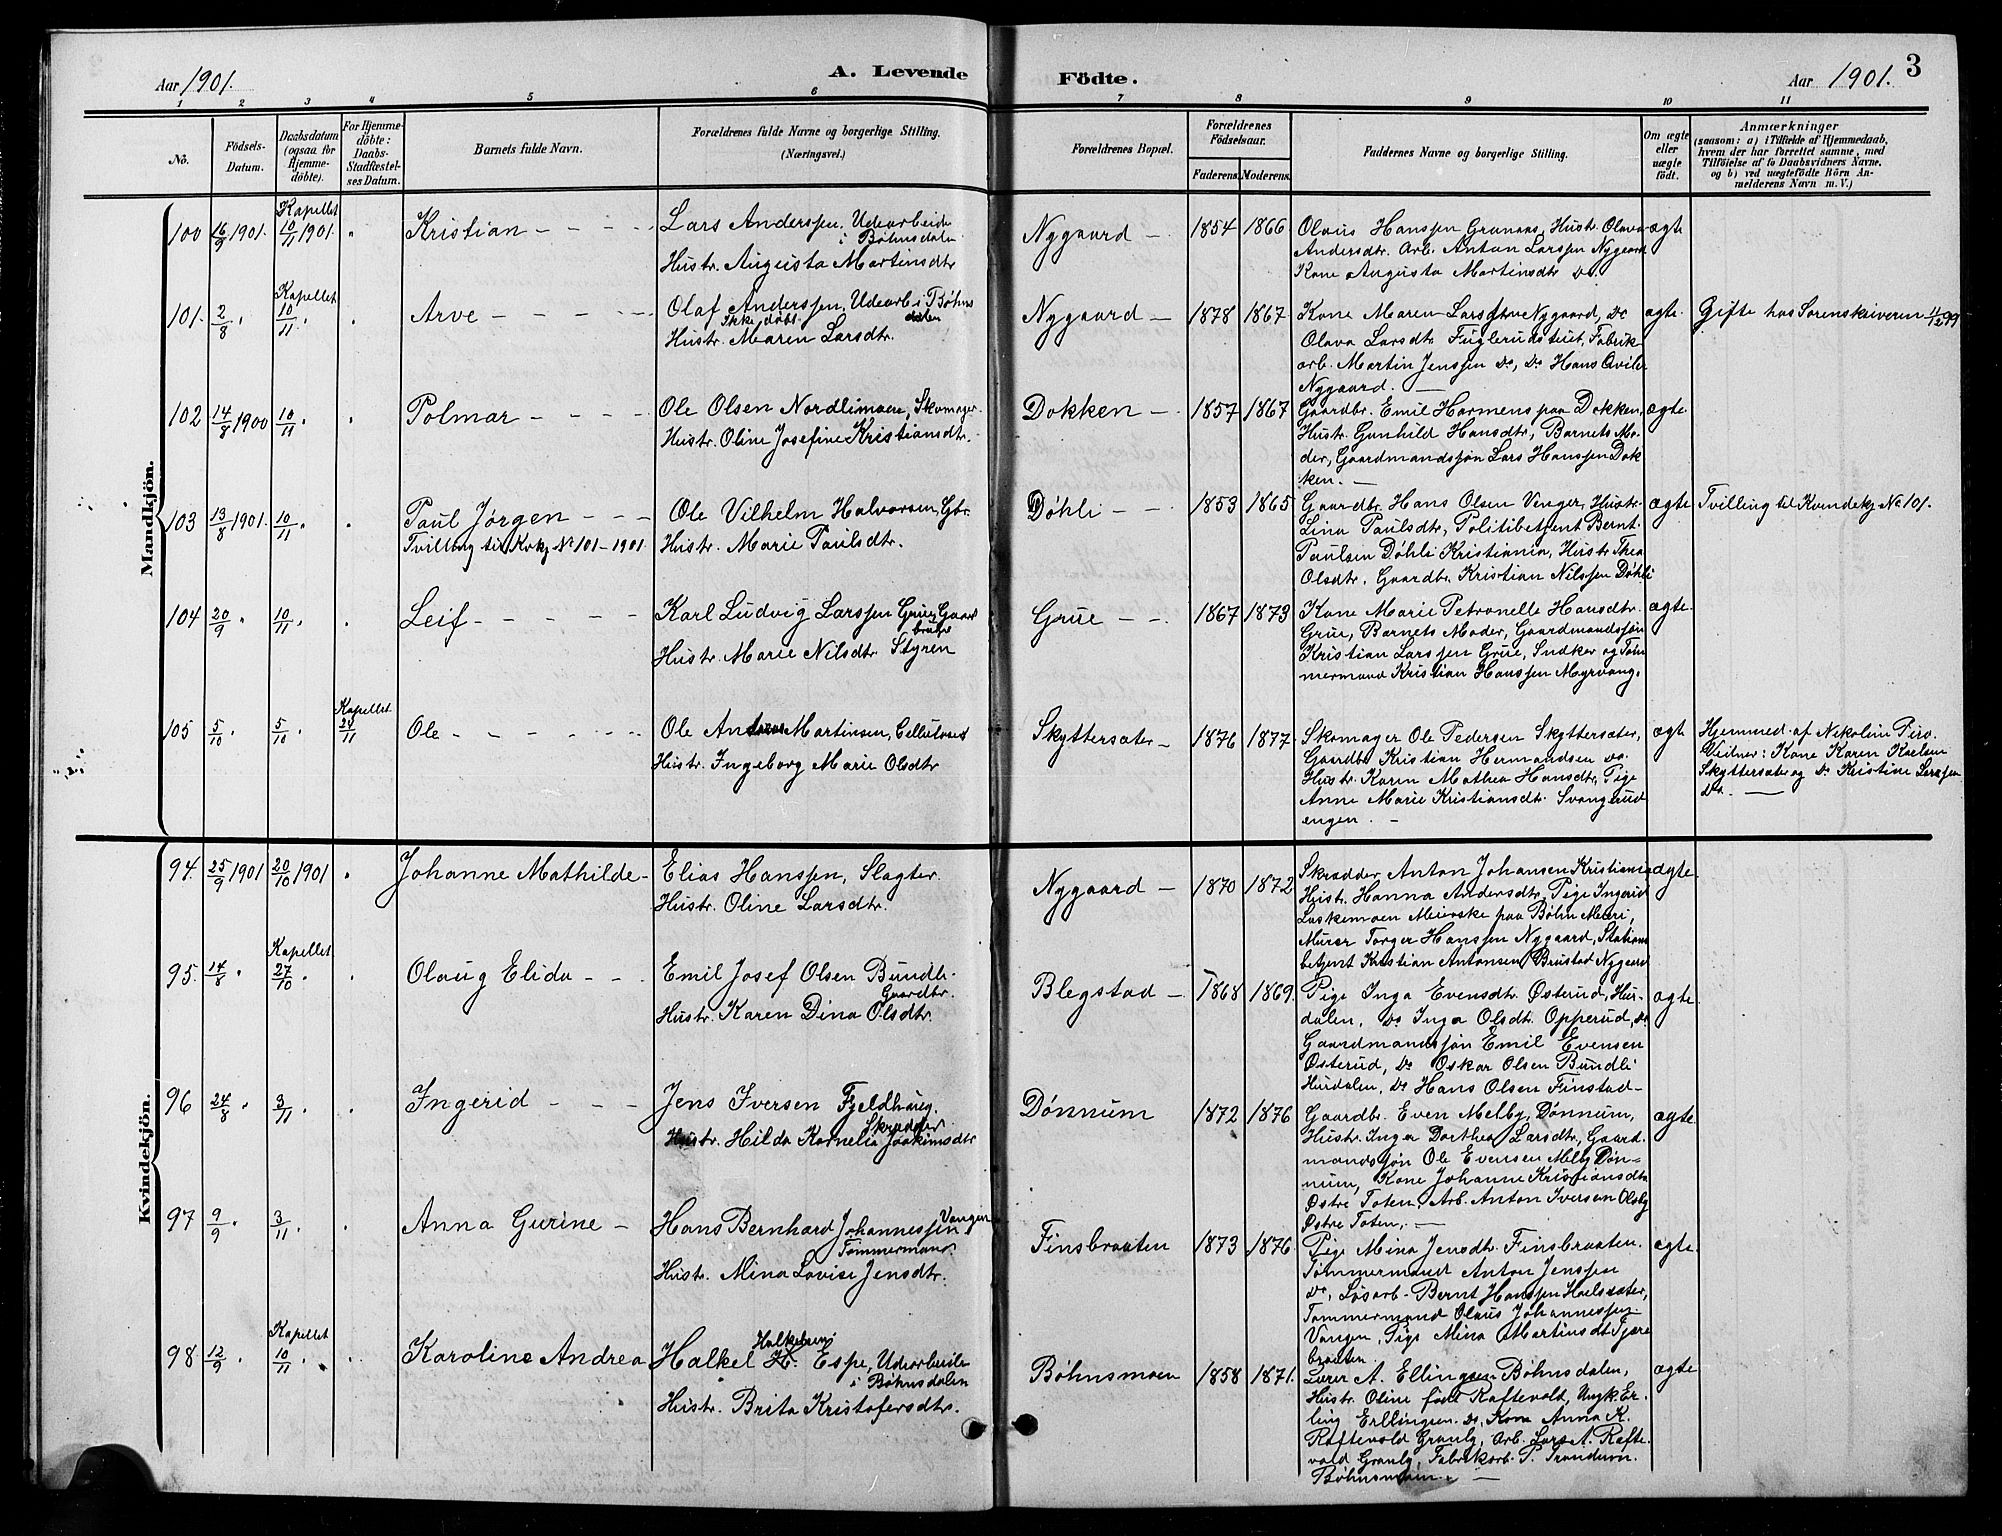 Aar 1901.
A. Levende Födte.
Aar 1901. 3
1 2 3 4 5 6 7 8 9 10 11
No.
Födsels-
Datum.
Daabsdatum
(ogsaa for
Hjemme-
döbte).
For Hjemme-
döbte:
Daabs-
Stadfæstel-
ses Datum.
Barnets fulde Navn.
Forældrenes fulde Navne og borgerlige Stilling.
(Næringsvei.)
Forældrenes Bopæl.
Forældrenes
Födselsaar.
Faderens. Moderens.
Faddernes Navne og borgerlige Stilling.
Om ægte
eller
uægte
födt.
Anmærkninger
(saasom: a) i Tilfælde af Hjemmedaab,
hvem der har forrettet samme, med
Tilföielse af to Daabsvidners Navne,
og b) ved uægtefödte Börn An-
melderens Navn m. V.)
Mandkjön.
100 16/9 1901. Kapellet 10/11 1901. "
Kristian - - - -
Lars Anderssen, Udearbeider
i Bøhnsdalen
Hustr. Augusta Martinsdtr
Nygaard - 1854 1866
Olaus Hanssen Granaas, Hustr. Olava
Andersdtr. Arb. Anton Larssen Nygaard
Kone Augusta Martinsdtr Do.
ægte
101. 2/8 " Kapellet 10/11 " "
Arve - - - - -
Olaf Anderssen, Udearb i Bøhns
dalen
Ikke døbt
Hustr. Maren Larsdtr.
Nygaard - 1878 1867
Kone Maren Larsdtr Nygaard, Do
Olava Larsdtr Fuglerudstuet, Fabrik
arb. Martin Jenssen Do, Do Hans
Nygaard. -
ægte.
Gifte hos Sorenskriveren 11/12 99
102 14/8 1900 10/11 " "
Polmar - - - -
Ole Olsen Nordlimoen, Skomager.
Hustr. Oline Josefine Kristiansdtr.
Dokken - 1857 1867
Gaardbr. Emil Harmens paa Dokken,
Hustr. Gunhild Hansdtr, Barnets Mo-
der, Gaardmandssøn Lars Hanssen Dok
ken. -
ægte
103 13/8 1901. 10/11 " "
Paul Jørgen - - -
Tvilling til Kvkj No 101-1901.
Ole Vilhelm Halvorsen, Gbr.
Hustr. Marie Paulsdtr.
Døhli - - 1853 1865
Gaardbr. Hans Olsen Venger, Hustr.
Lina Paulsdtr, Politibetjent Bernt
Paulsen Døhli Kristiania, Hustr Thea
Olsdtr, Gaardbr. Kristian Nilssen Døhli
ægte
Tvilling til Kvindekj No 101.
104 20/9 " 10/11 " "
Leif - - - - -
Karl Ludvig Larssen Grue, Gaard
bruger
Hustr. Marie Nilsdtr. Styren
Grue - - 1867 1873
Kone Marie Petronelle Hansdtr.
Grue, Barnets Moder, Gaardmandssøn
Kristian Larssen Grue, Sndker og Tøm
mermand Kristian Hanssen Myrvang.
ægte
105 5/10 5/10 " Kapellet 24/11
Ole - - - - -
Ole Andreas Martinsen, Cellulosearb
Hustr. Ingeborg Marie Olsdtr
Skyttersæter - 1876 1877
Skomager Ole Pedersen Skyttersæter,
Gaardbr Kristian Hermandsen Do.
Hustr. Karen Mathea Hansdtr, Pige
Anne Marie Kristiansdtr. Svangerud
engen. -
ægte
Hjemmed. af Nikolini Piro.
Vidner: Kone Karen Karlsen
Skyttersæter og Do Kristine Larssen
Do. -
Kvindekjön.
94. 25/9 1901 20/10 1901 "
Johanne Mathilde -
Elias Hanssen, Slagter.
Hustr. Oline Larsdtr.
Nygaard - 1870 1872
Skrædder Anton Johansen Kristiania
Hustr. Hanna Andersdtr, Pige Ingerid
Laskemoen Meierske paa Bøhn Meieri,
Murer Torger Hanssen Nygaard, Stations
betjent Kristian Antonsen Brustad Nygaard
ægte
95. 14/8 " Kapellet 27/10 " "
Olaug Elida - -
Emil Josef Olsen Bundli.
Gaardbr.
Hustr. Karen Dina Olsdtr.
Blegstad - 1868 1869.
Pige Inga Evensdtr. Østerud, Hur-
dalen, Do Inga Olsdtr. Opperud, Do
Gaardmandssøn Emil Evensen
Østerud, Do Oskar Olsen Bundli
Hurdalen, Do Hans Olsen Finstad -
ægte
96 24/8 " 3/11 " "
Ingerid - - -
Jens Iversen Fjeldhaug.
Skrædder
Hustr. Hilda Kornelia Joakimsdtr
Dønnum 1872 1876
Gaardbr. Even Melby, Dønnum,
Hustr. Inger Dorthea Larsdtr, Gaard-
mandssøn Ole Evensen Melby Døn-
num, Kone Johanne Kristiansdtr
Østre Toten, Arb. Anton Iversen Olsby
Østre Toten, -
ægte.
97 9/9 " 3/11 " "
Anna Gurine -
Hans Bernhard Johannessen Vangen
Tømmermand
Hustr. Mina Lovise Jensdtr.
Finsbraaten 1873 1876
Pige Mina Jensdtr. Finsbraaten.
Tømmermand Anton Jenssen
Do, Løsarb. Bernt Hanssen Hœlsæter,
Tømmermand Olaus Johannessen
Vangen, Pige Mina Martinsdtr Tjære
braaten
ægte.
98. 12/9 " Kapellet 10/11 " "
Karoline Andrea
Halkelsen
Halkel H. Espe, Udearbeider
i Bøhnsdalen
Hustr. Brita Kristofersdtr.
Bøhnsmoen 1858 1871.
Lærer A. Ellingsen Bøhnsdalen,
Hustr. Oline født Raftevold, Ungk. Er-
ling Erlingsen Do, Kone Anna K.
Raftevold Granly, Arb. Lars A. Rafte-
vold Granly, Fabrikarb. P.
Bøhnsmoen. -
ægte